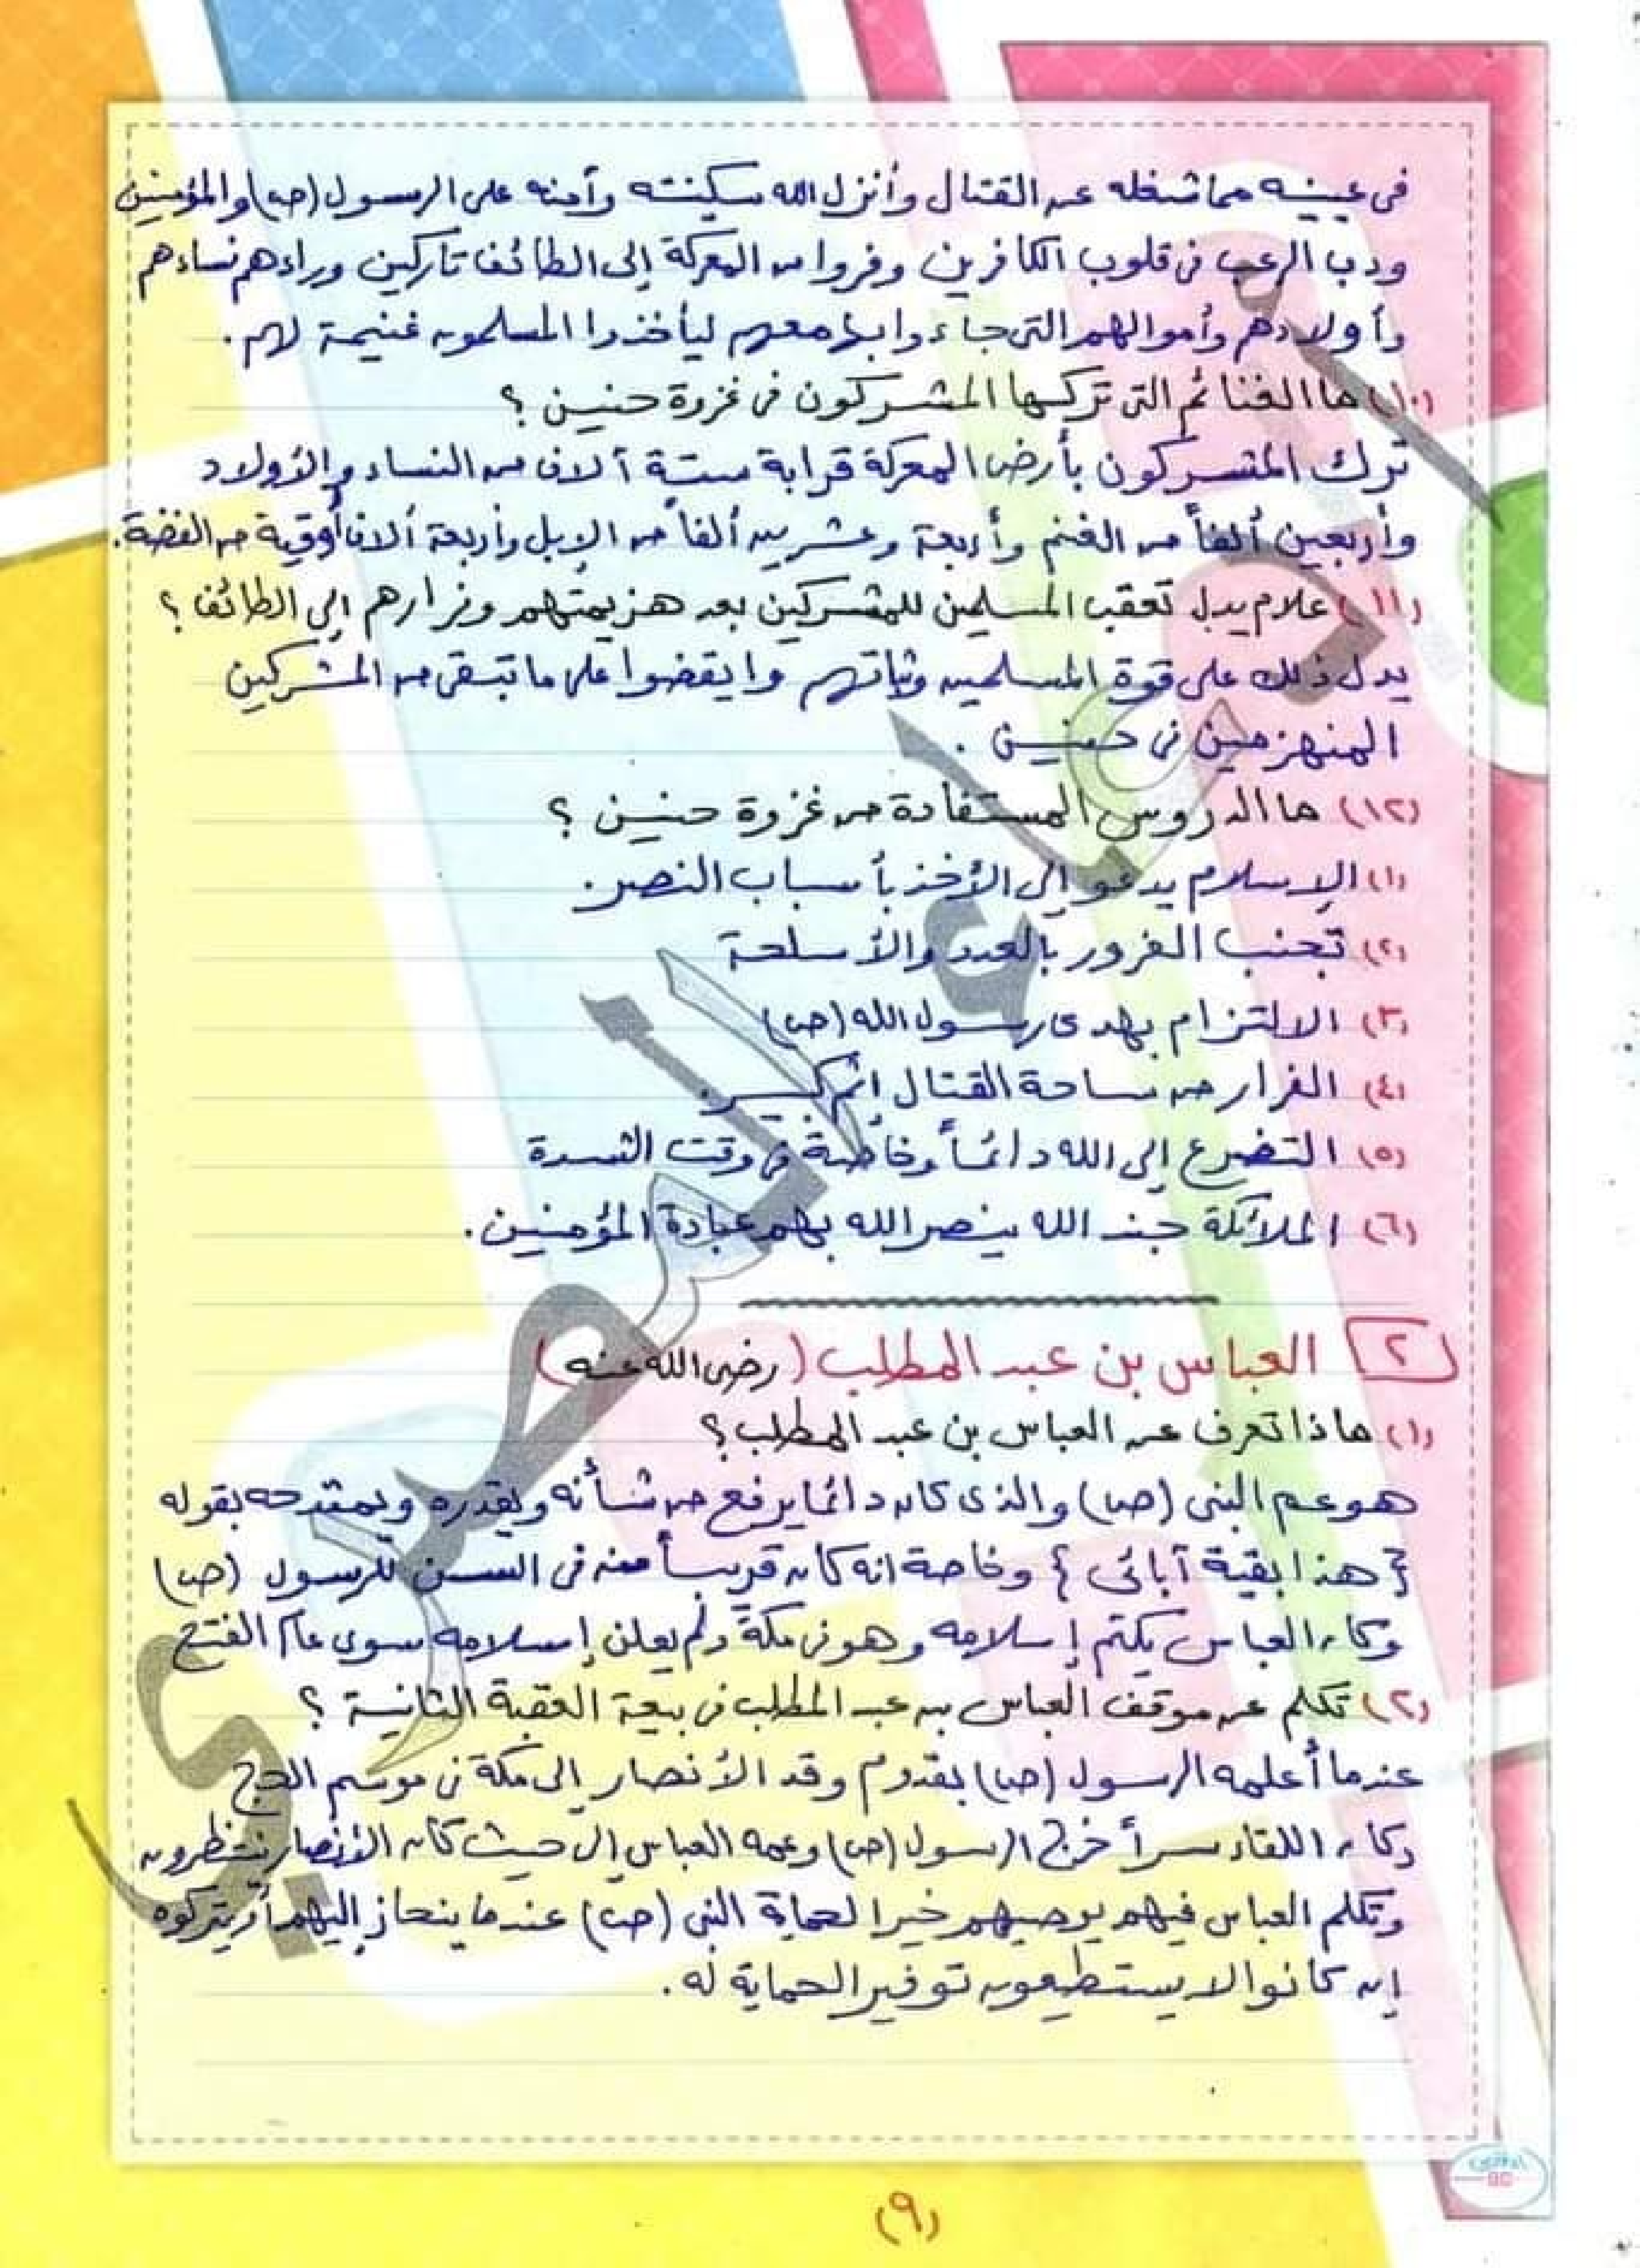 فى عينيه مما شغله عن القتال وأنزل الله سكينته وأمنه على الرسول (ص) والمؤمنين
ودب الرعب فى قلوب الكافرين وفروا من المعركة إلى الطائف تاركين وراءهم نساءهم
وأولادهم وأموالهم التى جاءوا بها معهم ليأخذوا المسلمون غنيمة لهم .
(١٠) ما الغنائم التى تركها المشركون فى غزوة حنين ؟
ترك المشركون بأرض المعركة قرابة ستة آلاف من النساء والأولاد
وأربعين ألفاً من الغنم وأربعة وعشرين ألفاً من الإبل وأربعة ألاف أوقية من الفضة .
(١١) علام يدل تعقب المسلمين للمشركين بعد هزيمتهم وفرارهم إلى الطائف ؟
يدل ذلك على قوة المسلمين وثباتهم وا يقضوا على ما تبقى من المشركين
المنهزمين فى حنين .
(١٢) ما الدروس المستفادة من غزوة حنين ؟
(١) الإسلام يدعو إلى الأخذ بأسباب النصر .
(٢) تجنب الغرور بالعدد والأسلحة
(٣) الالتزام بهدى رسول الله (ص)
(٤) الفرار من ساحة القتال إثم كبير .
(٥) التضرع إلى الله دائماً وخاصة فى وقت الشدة
(٦) الملائكة جند الله ينصر الله بهم عبادة المؤمنين .
٢ العباس بن عبد المطلب (رضى الله عنه)
(١) ماذا تعرف عن العباس بن عبد المطلب ؟
هو عم النبى (ص) والذى كان دائما يرفع من شأنه ويقدره ويمتدحه بقوله
{ هذا بقية آبائى } وخاصة انه كان قريباً منه فى السن للرسول (ص)
وكان العباس يكتم إسلامه وهو فى مكة ولم يعلن إسلامه سوى عام الفتح
(٢) تكلم عن موقف العباس بن عبد المطلب فى بيعة العقبة الثانية ؟
عندما أعلمه الرسول (ص) بقدوم وفد الأنصار إلى مكة فى موسم الحج
وكان اللقاء سراً خرج الرسول (ص) وعمه العباس إلى حيث كان الأنصار ينتظرون
وتكلم العباس فيهم يوصيهم خيرا لحماية النبى (ص) عندما ينحاز إليهم أو يتركوه
إن كانوا لا يستطيعون توفير الحماية له .
(٩)